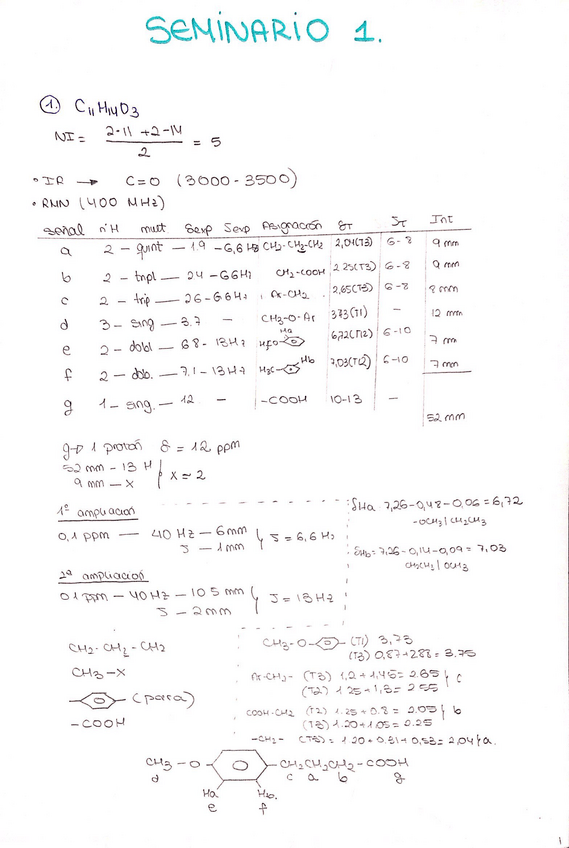 SEMINARIO 1.
1. C11H14O3
NI = 2·11 + 2 - 14 / 2 = 5
· IR → C=O (3000 - 3500)
· RMN (400 MHz)
señal nºH mult δexp Jexp Asignación δT JT Int
a 2 - quint - 1.9 - 6,6 Hz CH2-CH2-CH2 2,04(T3) 6-8 9 mm
b 2 - tripl - 2.4 - 6.6Hz CH2-COOH 2.25(T3) 6-8 9 mm
c 2 - trip - 2.6 - 6.6Hz Ar-CH2 2,65(T3) 6-8 8 mm
d 3 - sing - 3.7 - CH3-O-Ar 3.73(T1) - 12 mm
e 2 - dobl - 6.8 - 13Hz H3CO Ha 6,72(T12) 6-10 7 mm
f 2 - dob. - 7.1 - 13Hz H3C Hb 7,03(T12) 6-10 7 mm
g 1 - sing. - 12 - -COOH 10-13 -
52 mm
g→ 1 protón δ = 12 ppm
52 mm - 13 H
9 mm - x } x = 2
1ª ampliación
0,1 ppm — 40 Hz - 6mm
J - 1mm } J = 6,6 Hz
δHa: 7,26-0,48-0,06 = 6,72
-OCH3 | CH2CH3
δHb = 7,26-0,14-0,09 = 7,03
CH2CH3 | OCH3
2ª ampliación
0.1 ppm - 40Hz - 10.5 mm
J - 2mm } J = 13Hz
CH2-CH2-CH2
CH3-X
(para)
-COOH
CH3-O- - (T1) 3,73
(T3) 0,87+2.88 = 3.75
Ar-CH2- (T3) 1,2+1,45 = 2.65
(T2) 1.25+1,3 = 2.55 } c
COOH-CH2 (T2) 1.25+0.8 = 2.05
(T3) 1.20+1.05 = 2.25 } b
-CH2- (T3) = 1.20+0.31+0,53 = 2,04 } a.
CH3-O- -CH2CH2CH2-COOH
d c a b g
Ha Hb.
e f
1